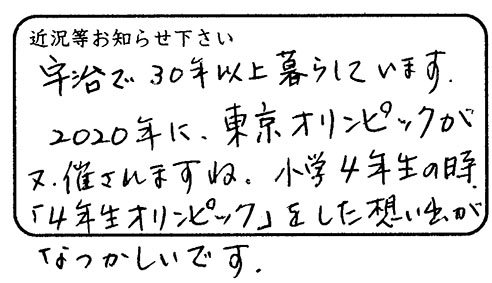 近況等お知らせ下さい
宇治で30年以上暮らしています.
2020年に、東京オリンピックが
又.催されますね。小学4年生の時.
「4年生オリンピック」をした想い出が
なつかしいです.